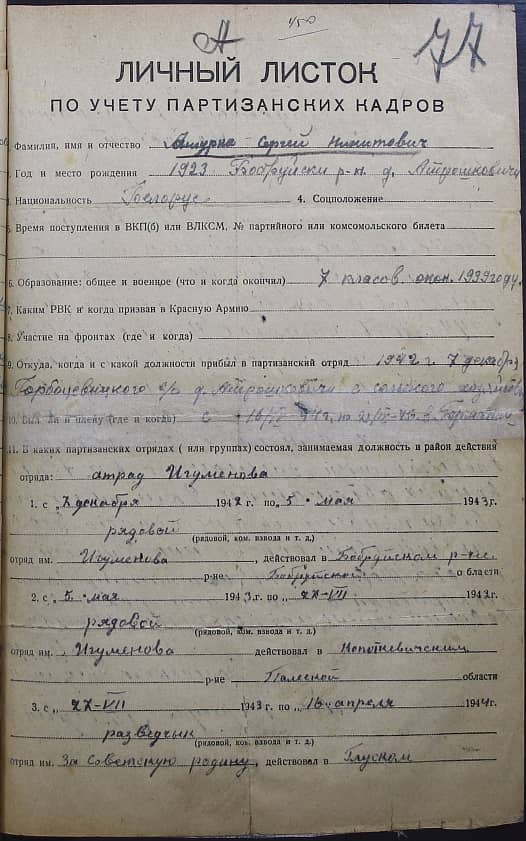 А
77
ЛИЧНЫЙ ЛИСТОК
ПО УЧЕТУ ПАРТИЗАНСКИХ КАДРОВ
Фамилия, имя и отчество Сергей Никитович
Год и место рождения 1923 Бобруйски р-н. д.
Национальность Белорус 4. Соцположение
5. Время поступления в ВКП(б) или ВЛКСМ, № партийного или комсомольского билета
6. Образование: общее и военное (что и когда окончил) 7 класов окон. 1939 году.
7. Каким РВК и когда призван в Красную Армию
8. Участие на фронтах (где и когда)
9. Откуда, когда и с какой должности прибыл в партизанский отряд 1942 г 7 декабря
с/с д. с
10. Был ли в плену (где и когда) с
11. В каких партизанских отрядах (или группах) состоял, занимаемая должность и район действия
отряда: атрад Игуменова
1. с „7 декабря 1942 г. по „5 · мая 1943 г.
рядовой
(рядовой, ком. взвода и т. д.)
отряд им. Игуменова, действовал в Бобруйском р-не
р-не Бобруйской области
2. с „5 · мая 1943 г. по „ 194 г.
рядовой
(рядовой, ком. взвода и т. д.)
отряд им. Игуменова действовал в
р-не области
3. с „ 1943 г. по „16 апреля 1944 г.
разведчик
(рядовой, ком. взвода и т. д.)
отряд им. За Советскую родину, действовал в Глуском